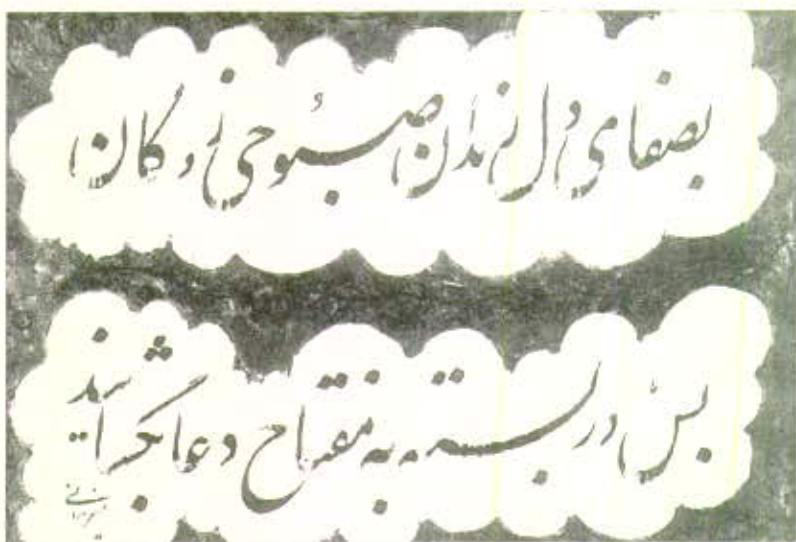 بصفای دل رندان صبوحی زدگان
بس در بسته به مفتاح دعا بگشایند